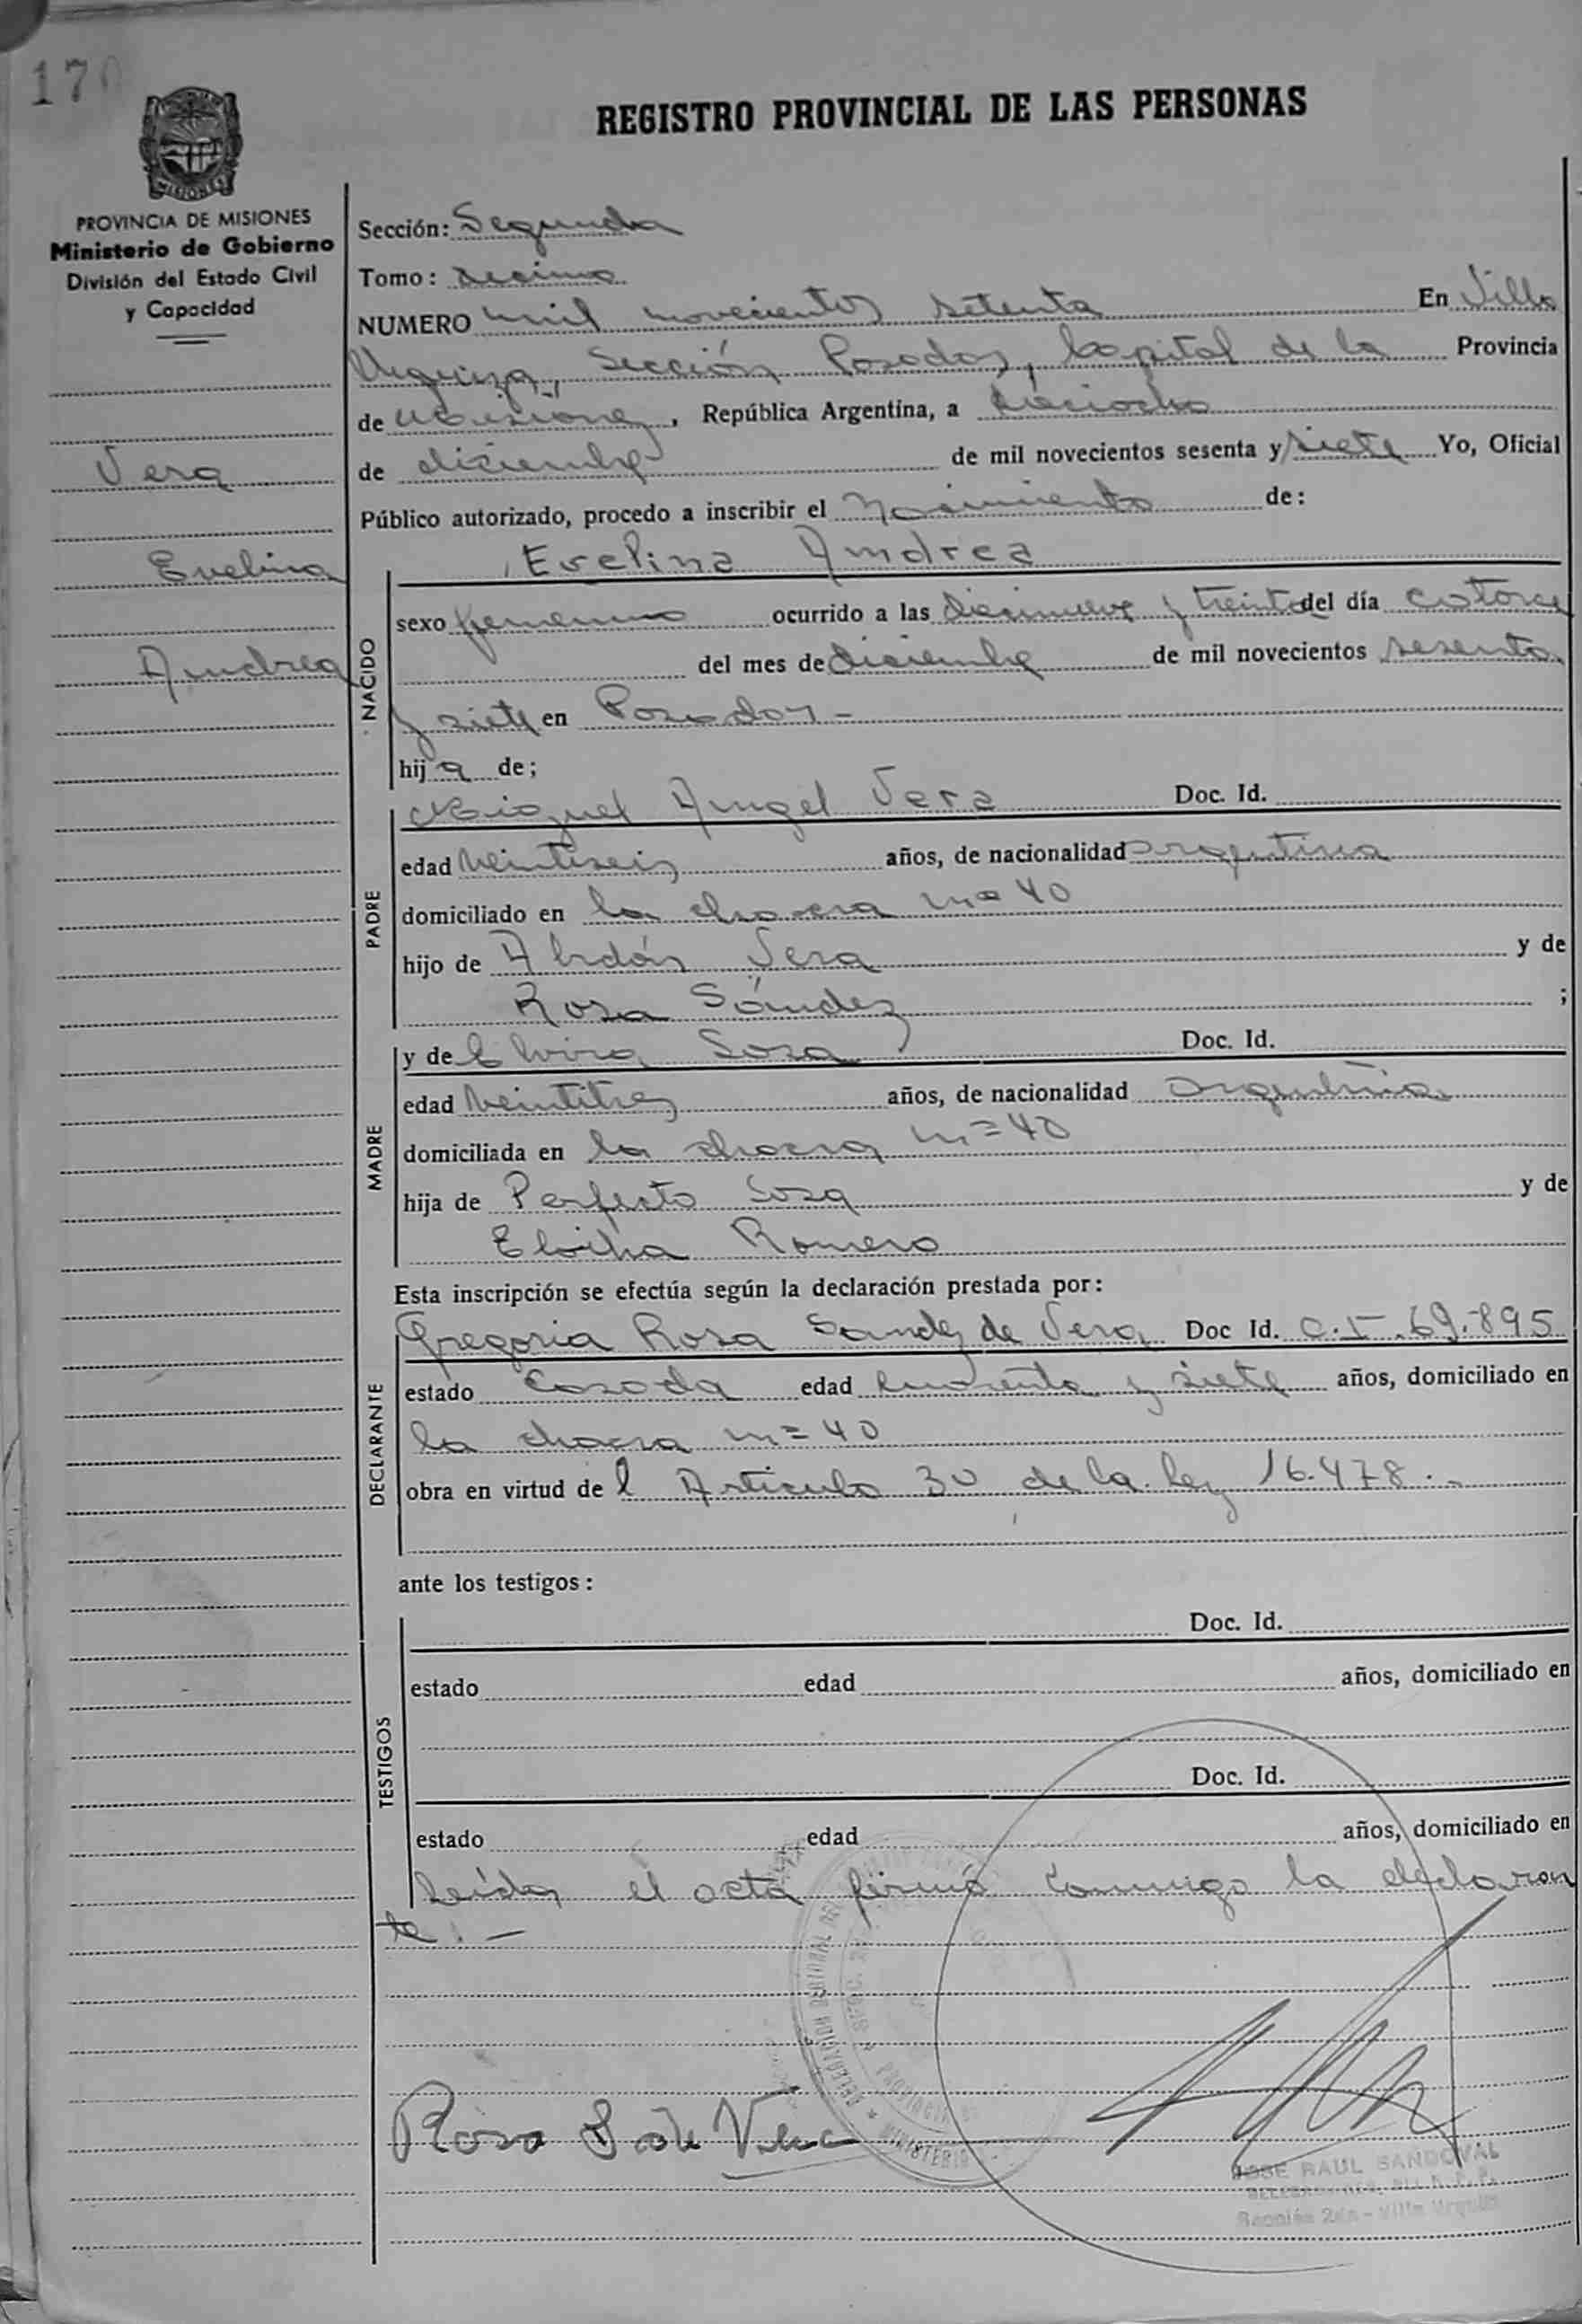 170
REGISTRO PROVINCIAL DE LAS PERSONAS
MISIONES
PROVINCIA DE MISIONES
Ministerio de Gobierno
División del Estado Civil
y Capacidad
Vera
Evelina
Andrea
Sección: Segunda
Tomo: decimo
NUMERO mil novecientos setenta En Villa
Urquiza, Sección Posadas, Capital de la Provincia
de Misiones, República Argentina, a dieciocho
de diciembre de mil novecientos sesenta y siete Yo, Oficial
Público autorizado, procedo a inscribir el Nacimiento de:
Evelina Andrea
NACIDO
sexo femenino ocurrido a las diecinueve y treinta del día catorce
del mes de diciembre de mil novecientos sesenta
y siete en Posadas -
hija de;
PADRE
Miguel Angel Vera Doc. Id.
edad veintiseis años, de nacionalidad argentina
domiciliado en la chacra nº 40
hijo de Abdón Vera y de
Rosa Sández ;
MADRE
y de Elvira Sosa Doc. Id.
edad veintitres años, de nacionalidad argentina
domiciliada en la chacra nº 40
hija de Perfecto Sosa y de
Romero
Esta inscripción se efectúa según la declaración prestada por:
DECLARANTE
Gregoria Rosa Sandez de Vera Doc Id. C.I. 69.895
estado casada edad cuarenta y siete años, domiciliado en
la chacra nº 40
obra en virtud del Articulo 30 de la ley 16.478.-
ante los testigos:
TESTIGOS
Doc. Id.
estado edad años, domiciliado en
Doc. Id.
estado edad años, domiciliado en
Leída el acta firmó conmigo la declaran
te.-
DELEGACION REGIONAL
SECC. 2da
PROVINCIA
MINISTERIO
Rosa S. de Vera
JOSE RAUL SANDOVAL
Sección 2da - Villa Urquiza